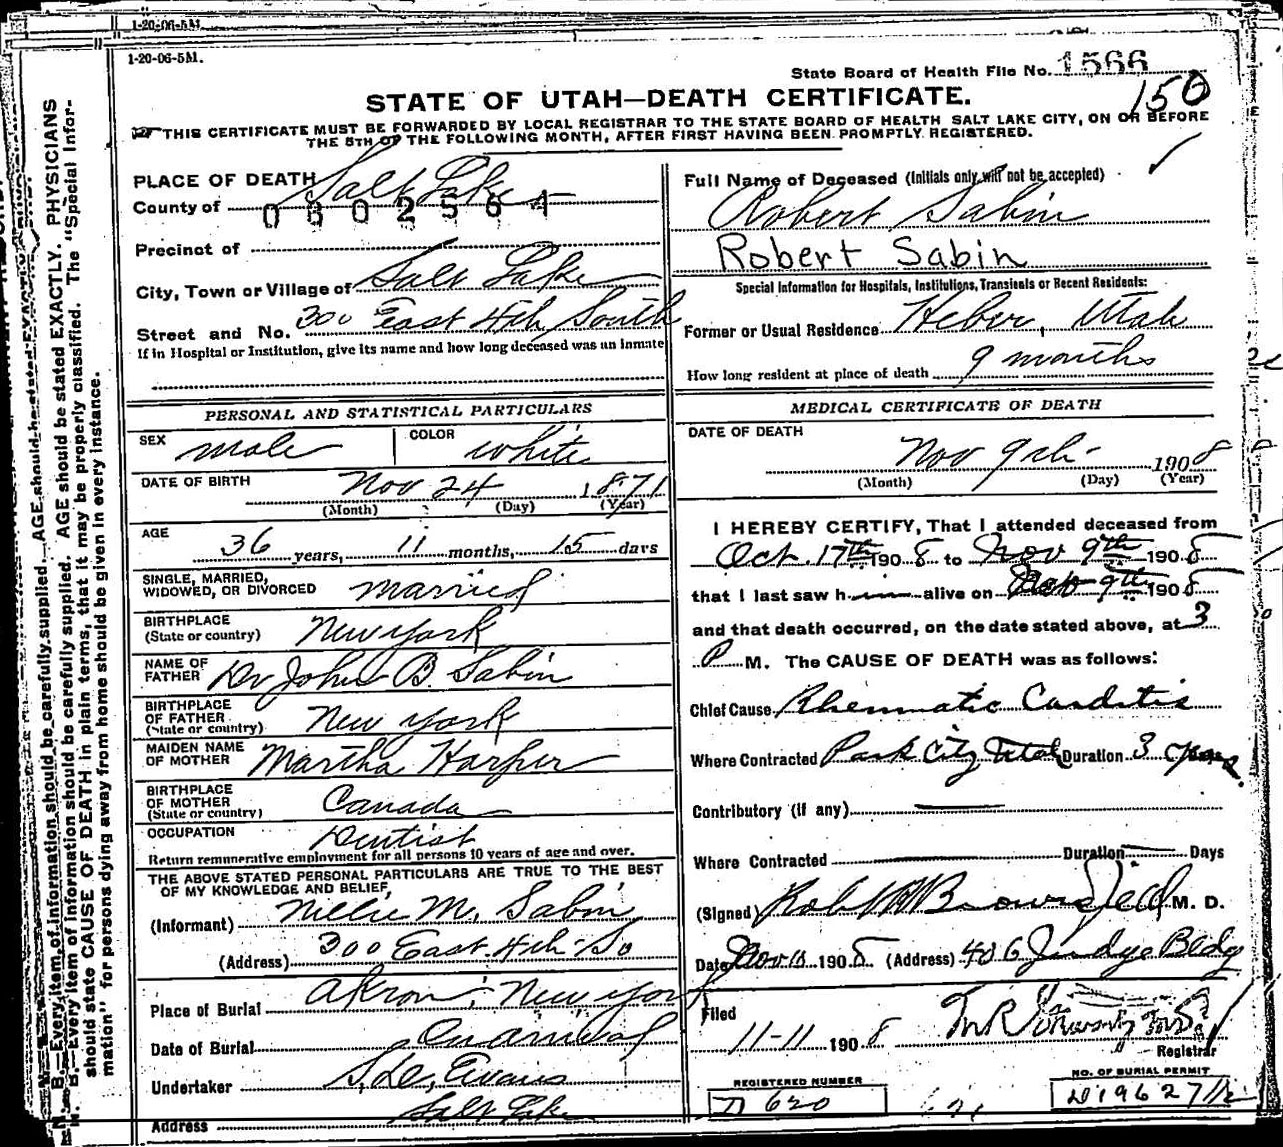 1-20-06-5M.
1-20-06-5M.
State Board of Health File No. 1566
150
STATE OF UTAH—DEATH CERTIFICATE.
THIS CERTIFICATE MUST BE FORWARDED BY LOCAL REGISTRAR TO THE STATE BOARD OF HEALTH SALT LAKE CITY, ON OR BEFORE
THE 5TH OF THE FOLLOWING MONTH, AFTER FIRST HAVING BEEN PROMPTLY REGISTERED.
PLACE OF DEATH
County of Salt Lake
0802564
Precinct of
City, Town or Village of Salt Lake
Street and No. 300 East 4th South
If in Hospital or Institution, give its name and how long deceased was an inmate
Full Name of Deceased (Initials only will not be accepted)
Robert Sabin
Robert Sabin
Special Information for Hospitals, Institutions, Transients or Recent Residents:
Former or Usual Residence Heber, Utah
How long resident at place of death 9 months
PERSONAL AND STATISTICAL PARTICULARS
SEX male COLOR white
DATE OF BIRTH Nov 24 1871
(Month) (Day) (Year)
AGE 36 years, 11 months, 15 days
SINGLE, MARRIED,
WIDOWED, OR DIVORCED married
BIRTHPLACE
(State or country) New York
NAME OF
FATHER Dr John B. Sabin
BIRTHPLACE
OF FATHER
(State or country) New York
MAIDEN NAME
OF MOTHER Martha Harper
BIRTHPLACE
OF MOTHER
(State or country) Canada
OCCUPATION Dentist
Return remunerative employment for all persons 10 years of age and over.
THE ABOVE STATED PERSONAL PARTICULARS ARE TRUE TO THE BEST
OF MY KNOWLEDGE AND BELIEF,
(Informant) Nellie M. Sabin
(Address) 300 East 4th So
Place of Burial Akron, New York
Date of Burial on arrival
Undertaker S. D. Evans
Address Salt Lake
MEDICAL CERTIFICATE OF DEATH
DATE OF DEATH
Nov 9th 1908
(Month) (Day) (Year)
I HEREBY CERTIFY, That I attended deceased from
Oct. 17th 1908 to Nov 9th 1908
that I last saw him alive on Nov 9th 1908
and that death occurred, on the date stated above, at 3
P M. The CAUSE OF DEATH was as follows:
Chief Cause Rheumatic Carditis
Where Contracted Park City Utah Duration 3 years
Contributory (if any)
Where Contracted Duration Days
(Signed) M. D.
Date Nov 10 1908 (Address) 406 Judge Bldg
Filed
11-11 1908
Registrar
REGISTERED NUMBER
D 620
NO. OF BURIAL PERMIT
N. B.—Every item of information should be carefully supplied. AGE should be stated EXACTLY. PHYSICIANS
should state CAUSE OF DEATH in plain terms, that it may be properly classified. The "Special Infor-
mation" for persons dying away from home should be given in every instance.